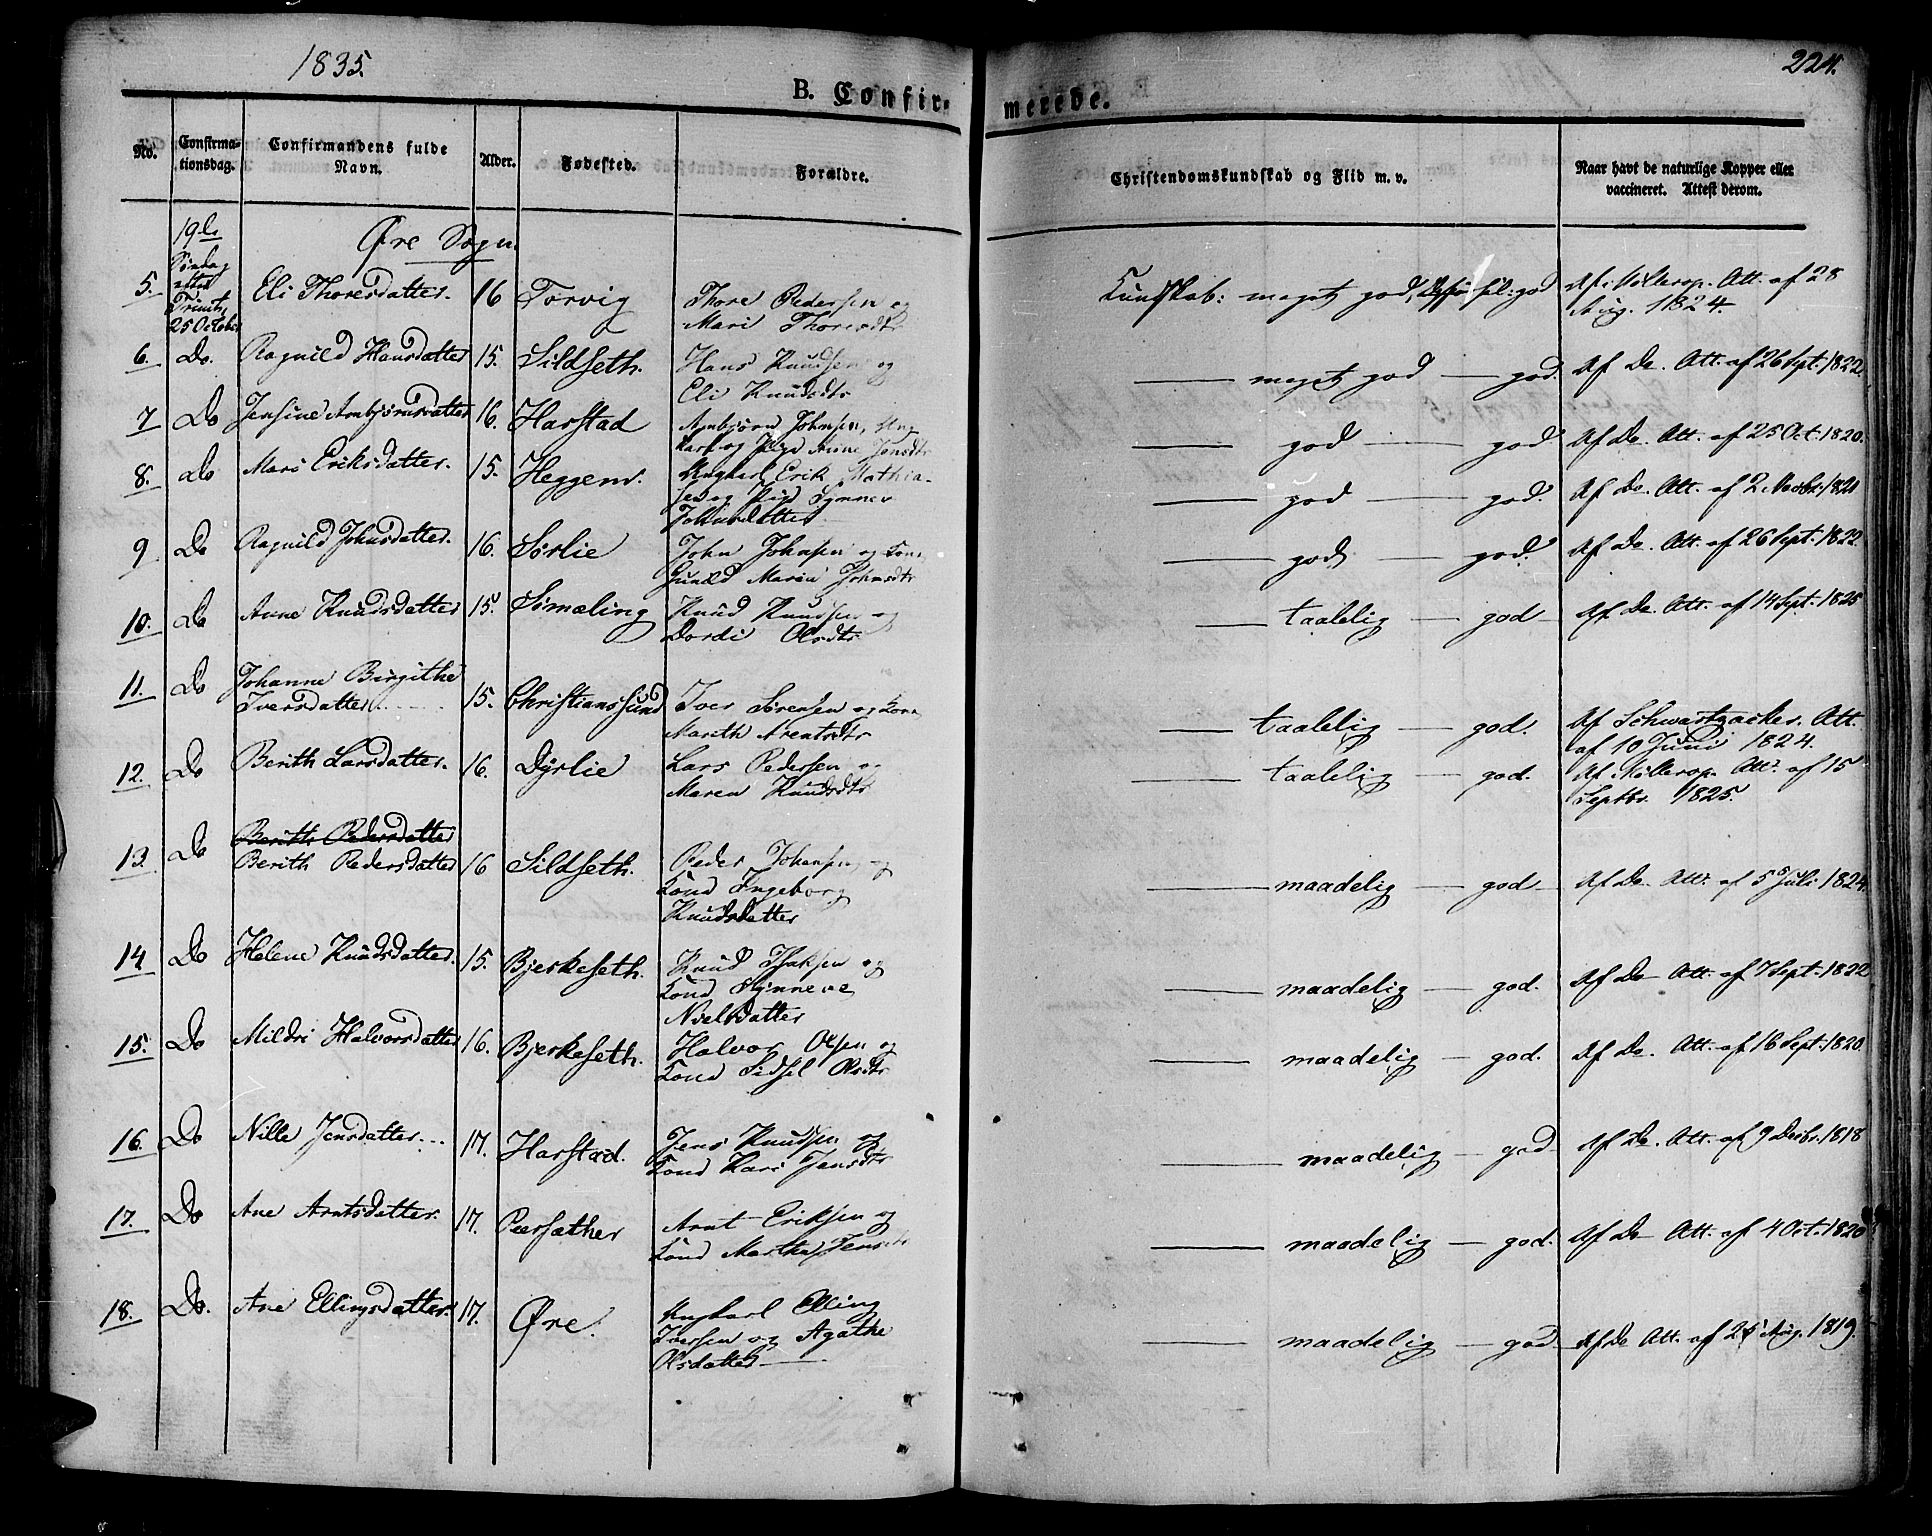 1835.
224.
B. Confirmerede.
No.
Confirmationsdag.
Confirmandens fulde Navn.
Alder.
Fødested.
Forældre.
Christendomskundskab og Flid m. v.
Naar havt de naturlige Kopper eller vaccineret. Attest derom.
19de Søndag efter Trinit. 25 October
Øre Sogn.
5. Eli Thoresdatter. 16 Torvig Thore Pedersen og Mari Thoresdtr Kundskab: meget god, god Af Att. af 28 Aug. 1824.
6. Do. Ragnild Hansdatter 15. Sildseth. Hans Knudsen og Eli Knudsdtr meget god god. Af Do. Att. af 26 Sept. 1822.
7 Do Jensine Arnbjørnsdatter 16. Harstad Arnbjørn Johnsen, Ungkarl og Pige Anne Jensdtr god god Af Do. Att. af 25 Oct. 1820.
8. do Mari Eriksdatter. 15. Heggem. Ungkarl Erik Mathiasen og Pige Synnev Johnsdatter god god. Af Do. Att. af 2 Novbr. 1821
9 Do Ragnild Johnsdatter. 16. Sørlie John Johnsen og Kone Gunild Maria Johnsdtr god god. Af Do. Att. af 26 Sept. 1822.
10. Do Anne Knudsdatter 15. Sømæling Knud Knudsen og Dordi Olsdtr taalelig god Af Do. Att. af 14 Sept. 1825
11. Do Johanne Birgithe Iversdatter 15. Christianssund Iver Sørensen og Kone Marith Arentsdtr taalelig god. Af Schwartzacher. Att. af 10 Juni 1824.
12. Do Berith Larsdatter. 16. Dyrlie Lars Pedersen og Maren Knudsdtr taalelig god. Af Att. af 15 Septbr. 1825.
13. Do Berith Pedersdatter
Berith Pedersdatter 16 Sildseth. Peder Johansen og Kone Ingeborg Knudsdatter maadelig god Af Do. Att. af 5 Juli 1824.
14 Do Helene Knudsdatter. 15. Bjerkeseth. Knud Isaksen og Kone Synneve Nielsdatter maadelig god. Af Do Att. af 7 Sept. 1822
15. Do Mildri Halvorsdatter 16. Bjerkeseth. Halvor Olsen og Kone Sidsel Olsdtr maadelig god. Af Do. Att. af 16 Sept. 1820.
16. Do Nille Jensdatter 17. Harstad. Jens Knudsen og Kone Kari Jensdtr maadelig god Af Do. Att. af 9 Decbr. 1818
17. Do Ane Arntsdatter. 17. Peersæther Arnt Eriksen og Kone Martha Jensdtr maadelig god. Af Do Att. af 4 Oct. 1820
18. Do. Ane Ellingsdatter. 17. Øre. Ungkarl Elling Iversen og Agathe Olsdatter maadelig god Af Do Att. af 25 Aug. 1819.